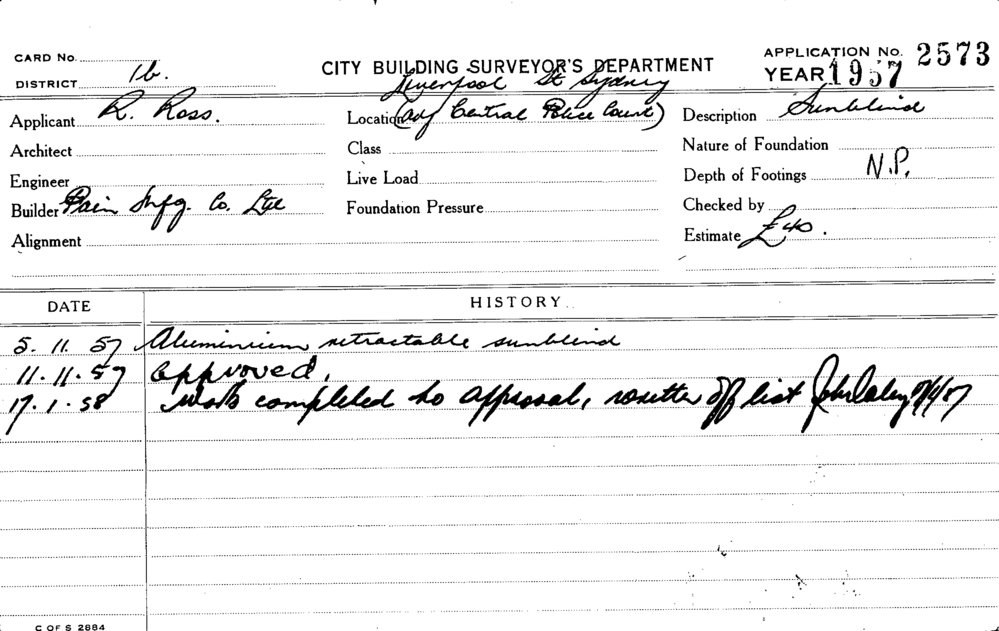 CARD No.
DISTRICT 1b.
CITY BUILDING SURVEYOR'S DEPARTMENT
APPLICATION No. 2573
YEAR 1957
Applicant R. Ross.
Location Liverpool St Sydney
(adj Central Police Court)
Description Sunblind
Architect
Class
Nature of Foundation
Engineer
Live Load
Depth of Footings N.P.
Builder Pain Mfg. Co. Ltd
Foundation Pressure
Checked by
Alignment
Estimate £40.
DATE HISTORY
5.11.57 Aluminium retractable sunblind
11.11.57 approved.
17.1.58 Work completed to approval, off list
C OF S 2884